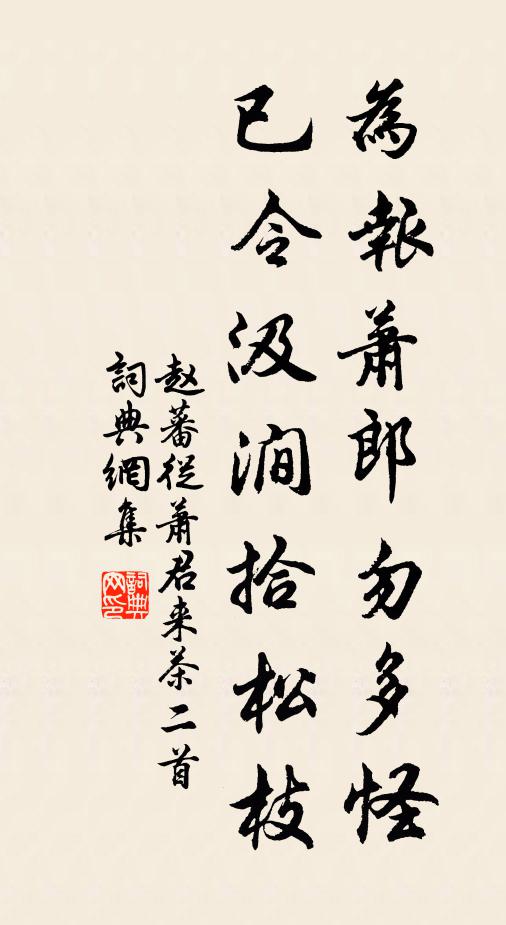 為報蕭郎勿多怪
已令汲澗拾松枝
赵蕃從蕭君来茶二首
詞典網集
詞典网印